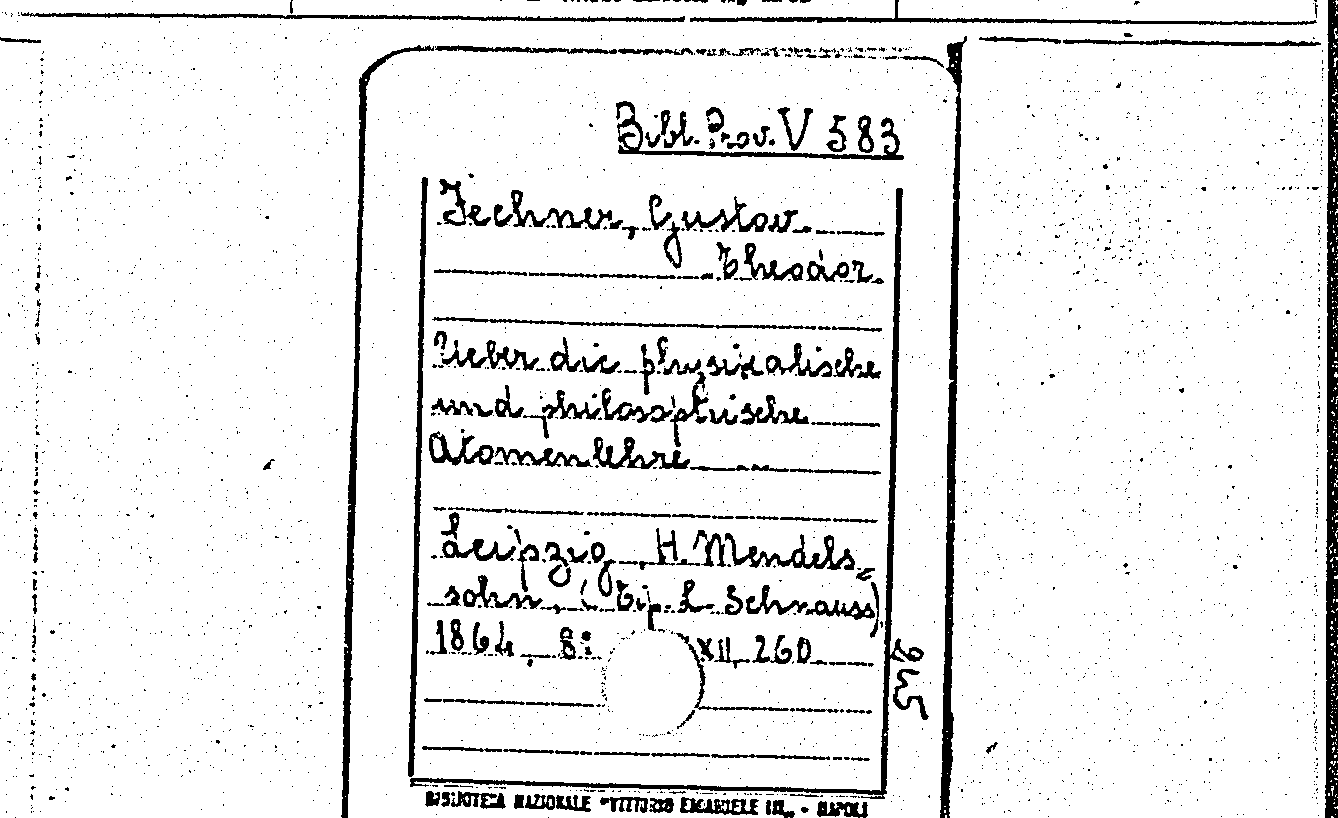 Bibl. Prov. V 583
Fechner, Gustav
Theodor.
Ueber die physikalische
und philosophische
Atomenlehre
Leipzig, H. Mendels=
sohn, (Tip. L. Schnauss)
1864, 8° XII, 260
245
BIBLIOTECA NAZIONALE "VITTORIO EMANUELE III„ - NAPOLI